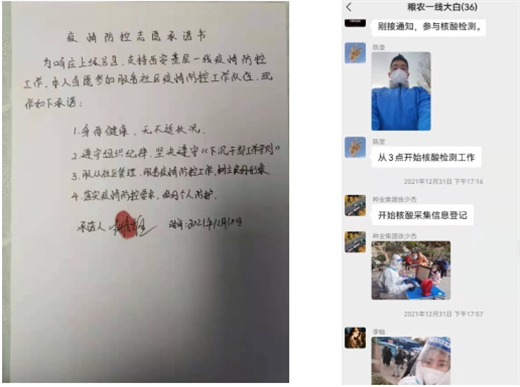 疫情防控志愿承诺书
为响应上级号召，支持西安基层一线疫情防控
工作，本人自愿参加服务社区疫情防控工作队伍，现
作如下承诺：
1.身体健康，无不适状况。
2.遵守组织纪律，坚决遵守《下沉干部工作守则》
3.服从社区管理，服务疫情防控工作，树立良好形象
4.落实疫情防控要求，做好个人防护。
承诺人
时间：2021年12月30日
粮农一线大白(36)
刚接通知，参与核酸检测。
陈奎
陈奎
从3点开始核酸检测工作
2021年12月31日 下午17:14
种业集团张少杰
开始核酸采集信息登记
种业集团张少杰
2021年12月31日 下午17:57
李鲳